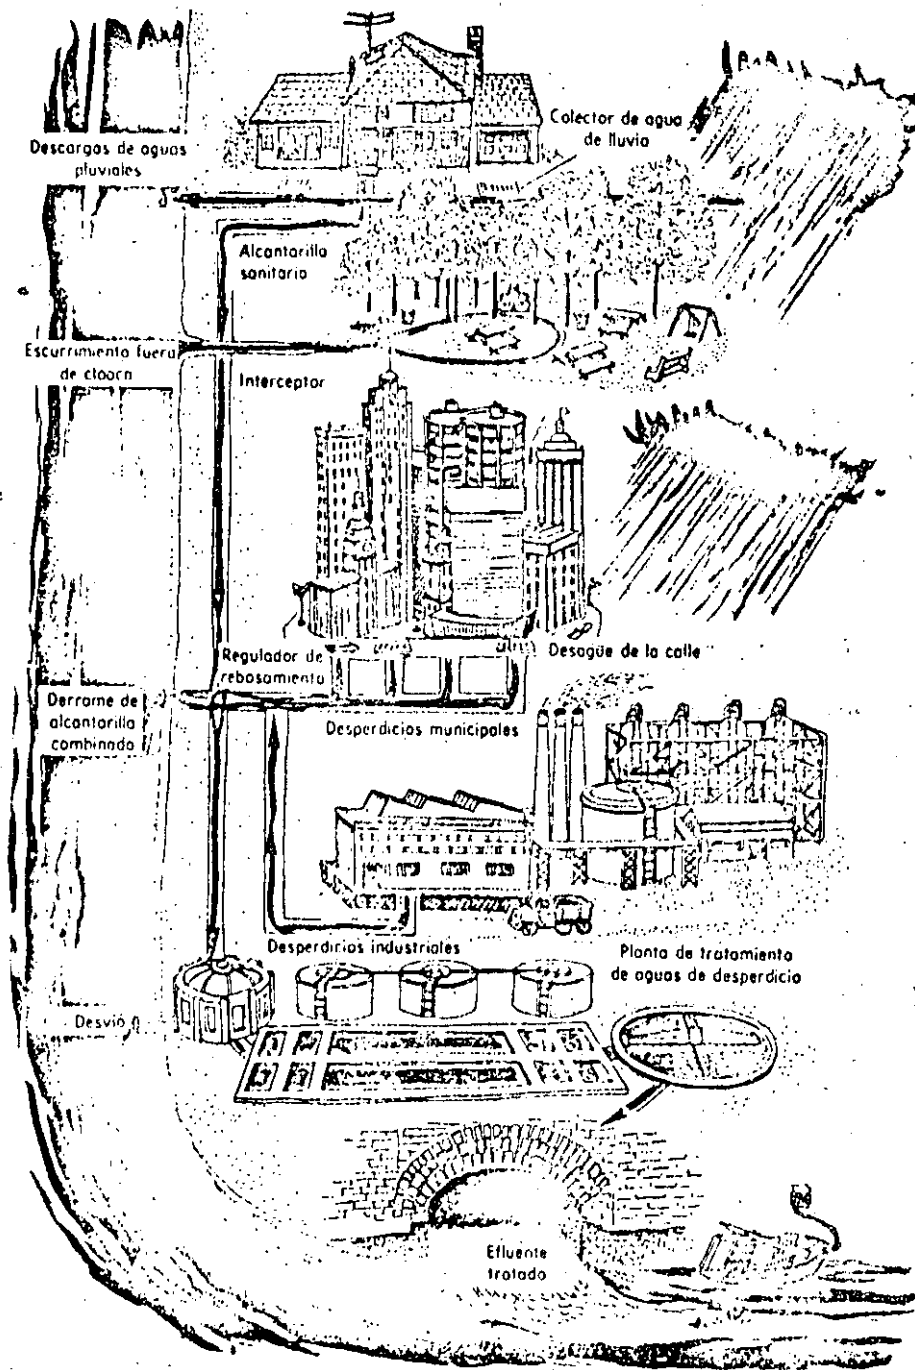 Colector de agua
de lluvia
Descargas de aguas
pluviales
Alcantarilla
sanitaria
Escurrimiento fuera
de cloaca
Interceptor
Regulador de
rebosamiento
Desagüe de la calle
Derrame de
alcantarilla
combinada
Desperdicios municipales
Desperdicios industriales
Planta de tratamiento
de aguas de desperdicio
Desvió
Efluente
tratado